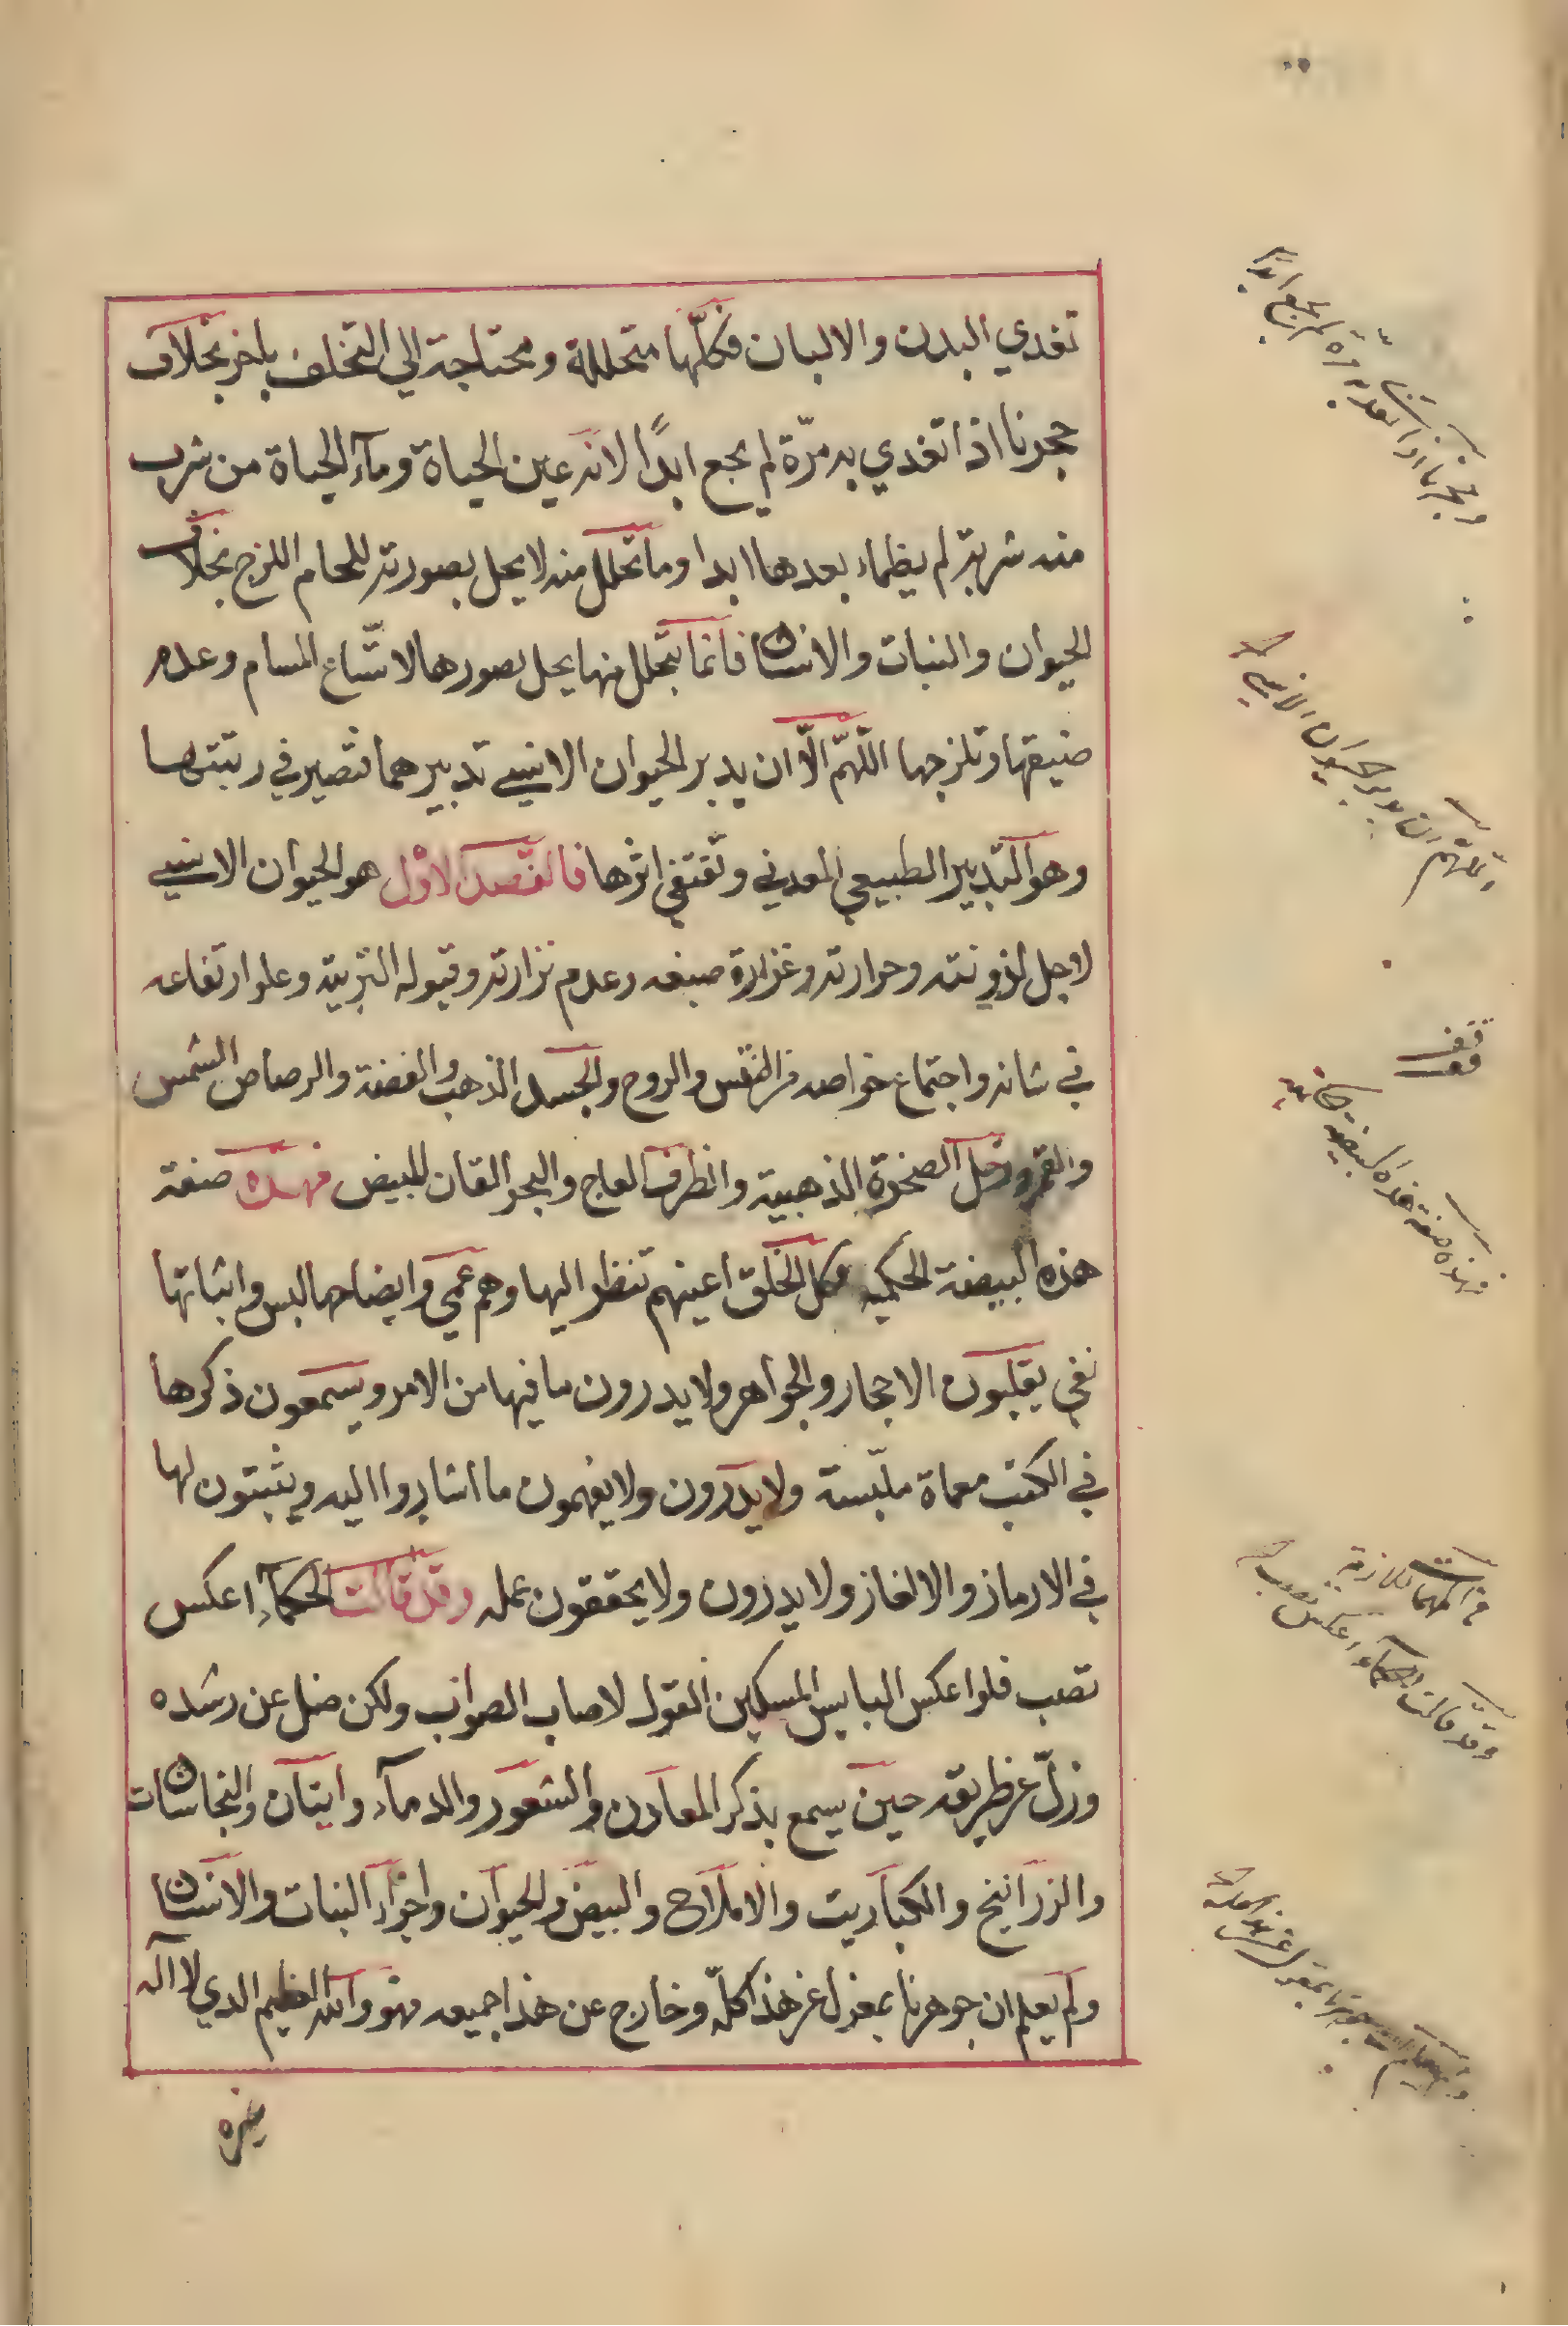 تغدي البدن والالبان فكلّها متحللة ومحتاجة الي التخلف باخر بخلاف
حجرنا اذا تغدي به مرّة لم يجع ابدًا لانه عين الحياة ومآء الحياة من شرب
منه شربة لم يظماء بعدها ابدا وما تحلل منه لا يحل بصورته للحام اللزج بخلاف
الحيوان والنبات والانسان فانما يتحلل منها يحل بصورها لاتّساع المسام وعدم
ضيقها وتلزجها اللّهمّ الّا ان يدبر الحيوان الانيسي تدبيرهما فتصير في رتبتها
وهو التدبير الطبيعي المعدني وتقتفي اثرها فالقصد الاوّل هو الحيوان الانيسي
لاجل لدونته وحرارته وغزارة صبغه وعدم نزارته وقبوله التربية وعلو ارتفاعه
في شانه واجتماع خواصه من النفس والروح والجسد الذهب والفضة والرصاص الشمس
والقمر وزحل الصخرة الذهبية والطرف العاج والبحر القان للبيض فهذه صنعة
هذه البيضة الحكمية فكل الخلق اعينهم تنظر اليها وهم عمي وايضاحها لبس واثباتها
نفي يقلبون الاحجار والجواهر ولا يدرون ما فيها من الامر ويسمعون ذكرها
في الكتب معماة ملبّسة ولا يدرون ولا يفهمون ما اشاروا اليه ويثبتون لها
في الارماز والالغاز ولا يدرون ولا يحققون عمله وقد قالت الحكمآء اعكس
تصب فلو اعكس البايس المسكين القول لاصاب الصواب ولكن ضل عن رشده
وزلّ عن طريقه حين يسمع بذكر المعادن والشعور والدمآء وانتان والنجاسات
والزرانيخ والكباريت والاملاح والبيض والحيوان واجزاء النبات والانسان
ولم يعلم ان جوهرنا بمعزل عن هذا كلّه وخارج عن هذا جميعه فهو والله العظيم الدي لا اله
غيره
اللّهمّ الا ان يدبر الحيوان الانيسي
قف
فهذه صنعة هذه البيضة الحكمية
وقد قالت الحكمآء اعكس تصب